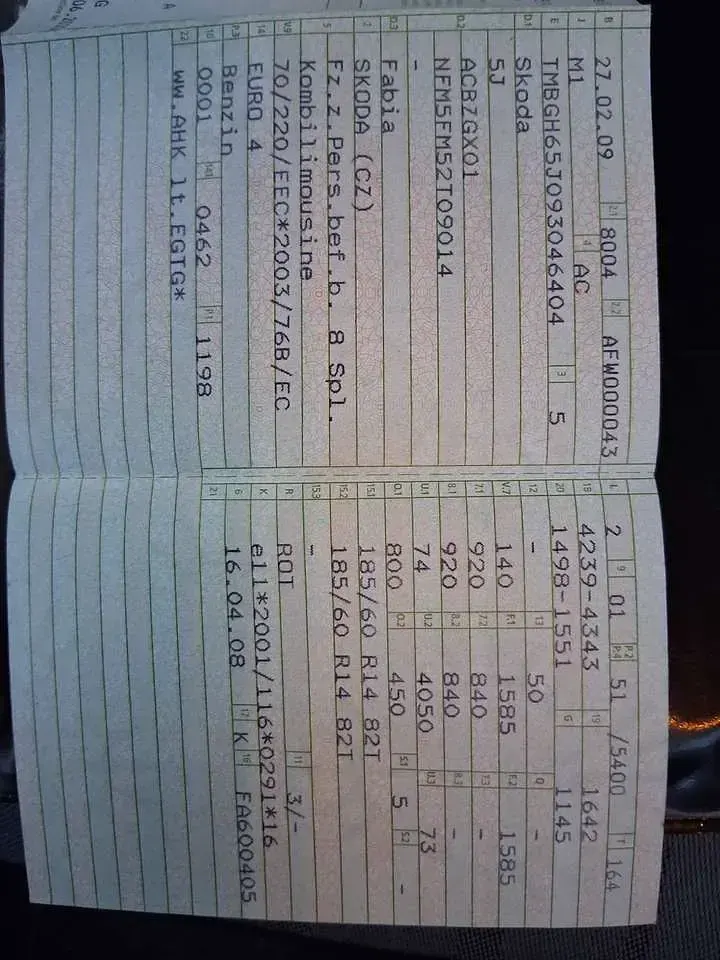 B 27.02.09 2.1 8004 2.2 AFW000043
J M1 4 AC
E TMBGH65J093046404 3 5
D.1 Skoda
5J
D.2 ACBZGX01
NFM5FM52T09014
-
D.3 Fabia
2 SKODA (CZ)
5 Fz.z.Pers.bef.b. 8 Spl.
Kombilimousine
V.9 70/220/EEC*2003/76B/EC
14 EURO 4
P.3 Benzin
10 0001 14.1 0462 P.1 1198
22 ww.AHK lt.EGTG*
L 2 9 01 P.2 P.4 51 /5400 T 164
18 4239-4343 19 1642
20 1498-1551 G 1145
12 - 13 50 Q -
V.7 140 F.1 1585 F.2 1585
7.1 920 7.2 840 7.3 -
8.1 920 8.2 840 8.3 -
U.1 74 U.2 4050 U.3 73
O.1 800 O.2 450 S.1 5 S.2 -
15.1 185/60 R14 82T
15.2 185/60 R14 82T
15.3 -
R ROT 11 3/-
K e11*2001/116*0291*16
6 16.04.08 17 K 16 FA600405
21